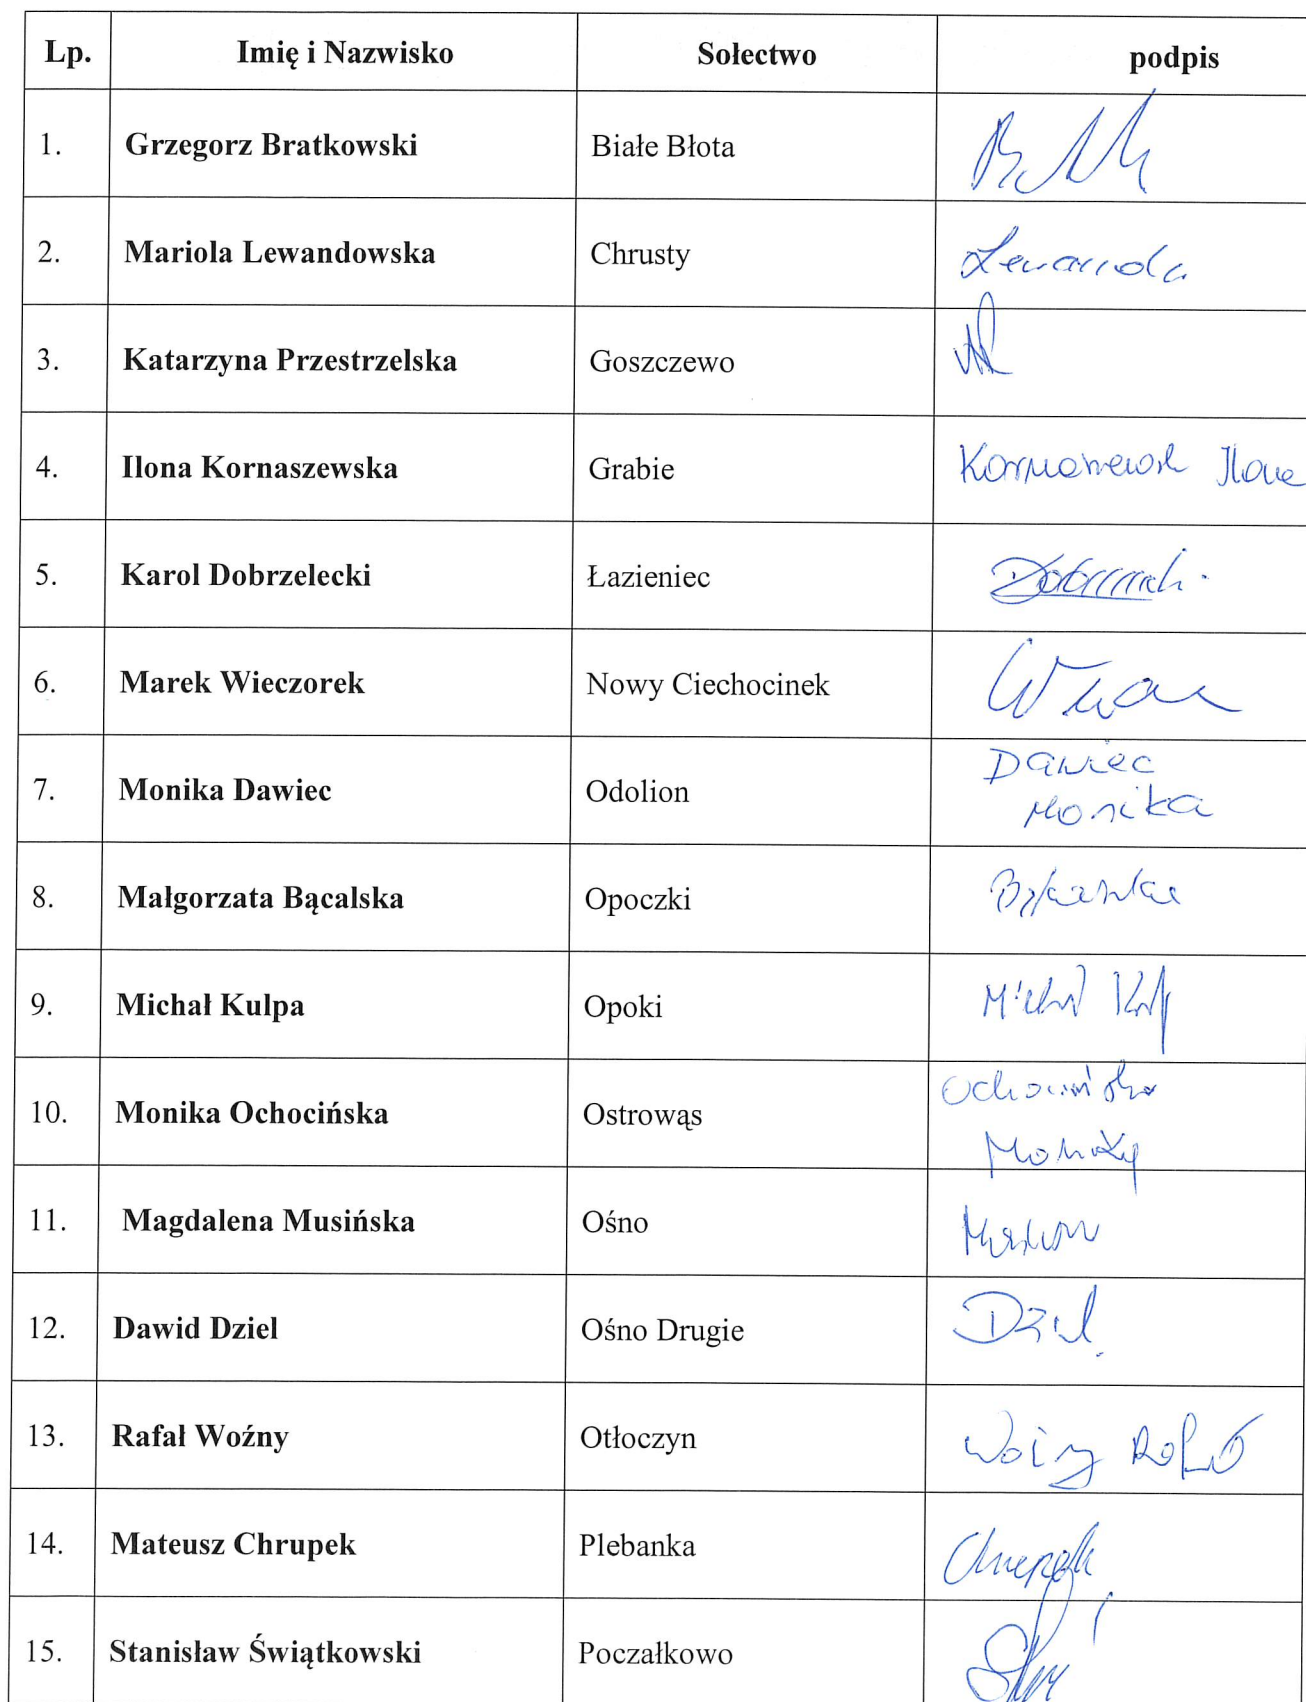 Lp. Imię i Nazwisko Sołectwo podpis
1. Grzegorz Bratkowski Białe Błota
2. Mariola Lewandowska Chrusty
3. Katarzyna Przestrzelska Goszczewo
4. Ilona Kornaszewska Grabie Ilona
5. Karol Dobrzelecki Łazieniec
6. Marek Wieczorek Nowy Ciechocinek
7. Monika Dawiec Odolion Dawiec
Monika
8. Małgorzata Bącalska Opoczki
9. Michał Kulpa Opoki Michał
10. Monika Ochocińska Ostrowąs Ochocińska
Monika
11. Magdalena Musińska Ośno
12. Dawid Dziel Ośno Drugie Dziel
13. Rafał Woźny Otłoczyn Woźny Rafał
14. Mateusz Chrupek Plebanka Chrupek
15. Stanisław Świątkowski Poczałkowo